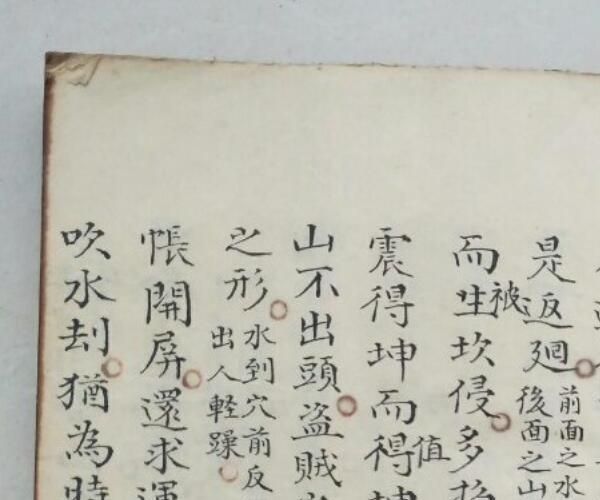 是返廻
前面之水
後面之山
而生坎侵多
被
震得坤而得坤
值
山不出頭盜賊
之形
水到穴前反
出人輕躁
帳開屏還求運
吹水刦猶為時